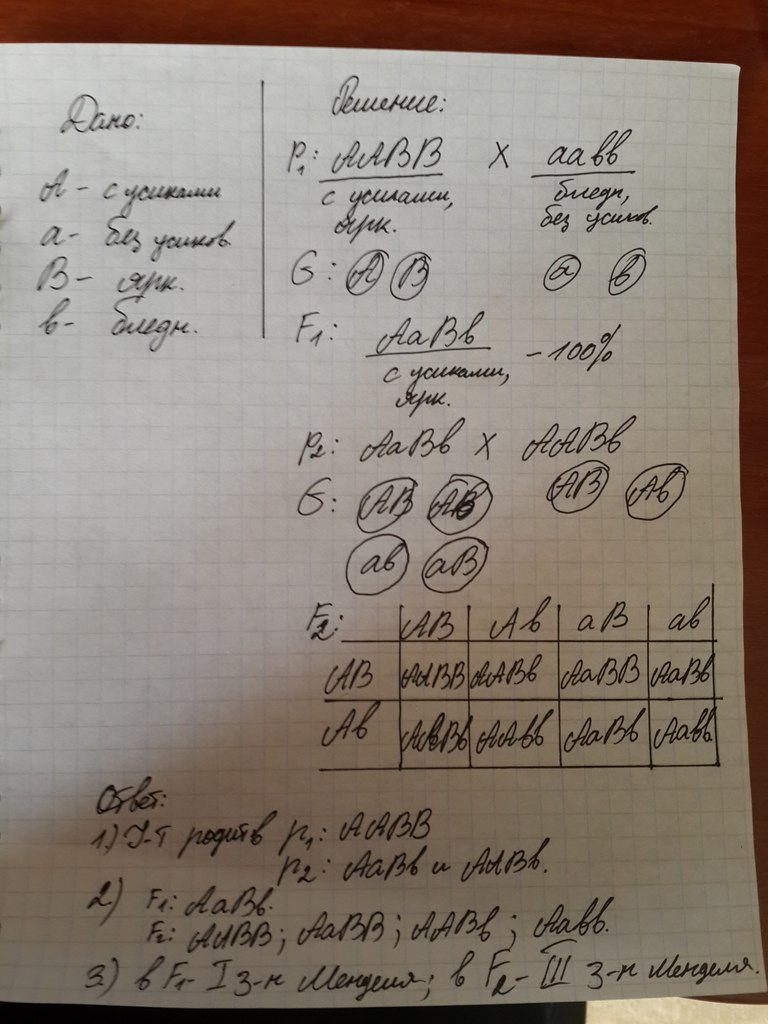 Дано:
А - с усиками
а - без усиков.
В - ярк.
в - бледн.
Решение:
P₁: ААВВ X аавв
с усиками, ярк.
бледн, без усиков.
G: А В а в
F₁: АаВв - 100%
с усиками, ярк.
P₂: АаВв X ААВв
G: АВ Ав АВ Ав
ав аВ
F₂: АВ Ав аВ ав
АВ ААВВ ААВв АаВВ АаВв
Ав ААВв ААвв АаВв Аавв
Ответ:
1) Г-т родит-в P₁: ААВВ
P₂: АаВв и ААВв.
2) F₁: АаВв.
F₂: ААВВ; АаВВ; ААВв; Аавв.
3) в F₁ - I з-н Менделя; в F₂ - III з-н Менделя.